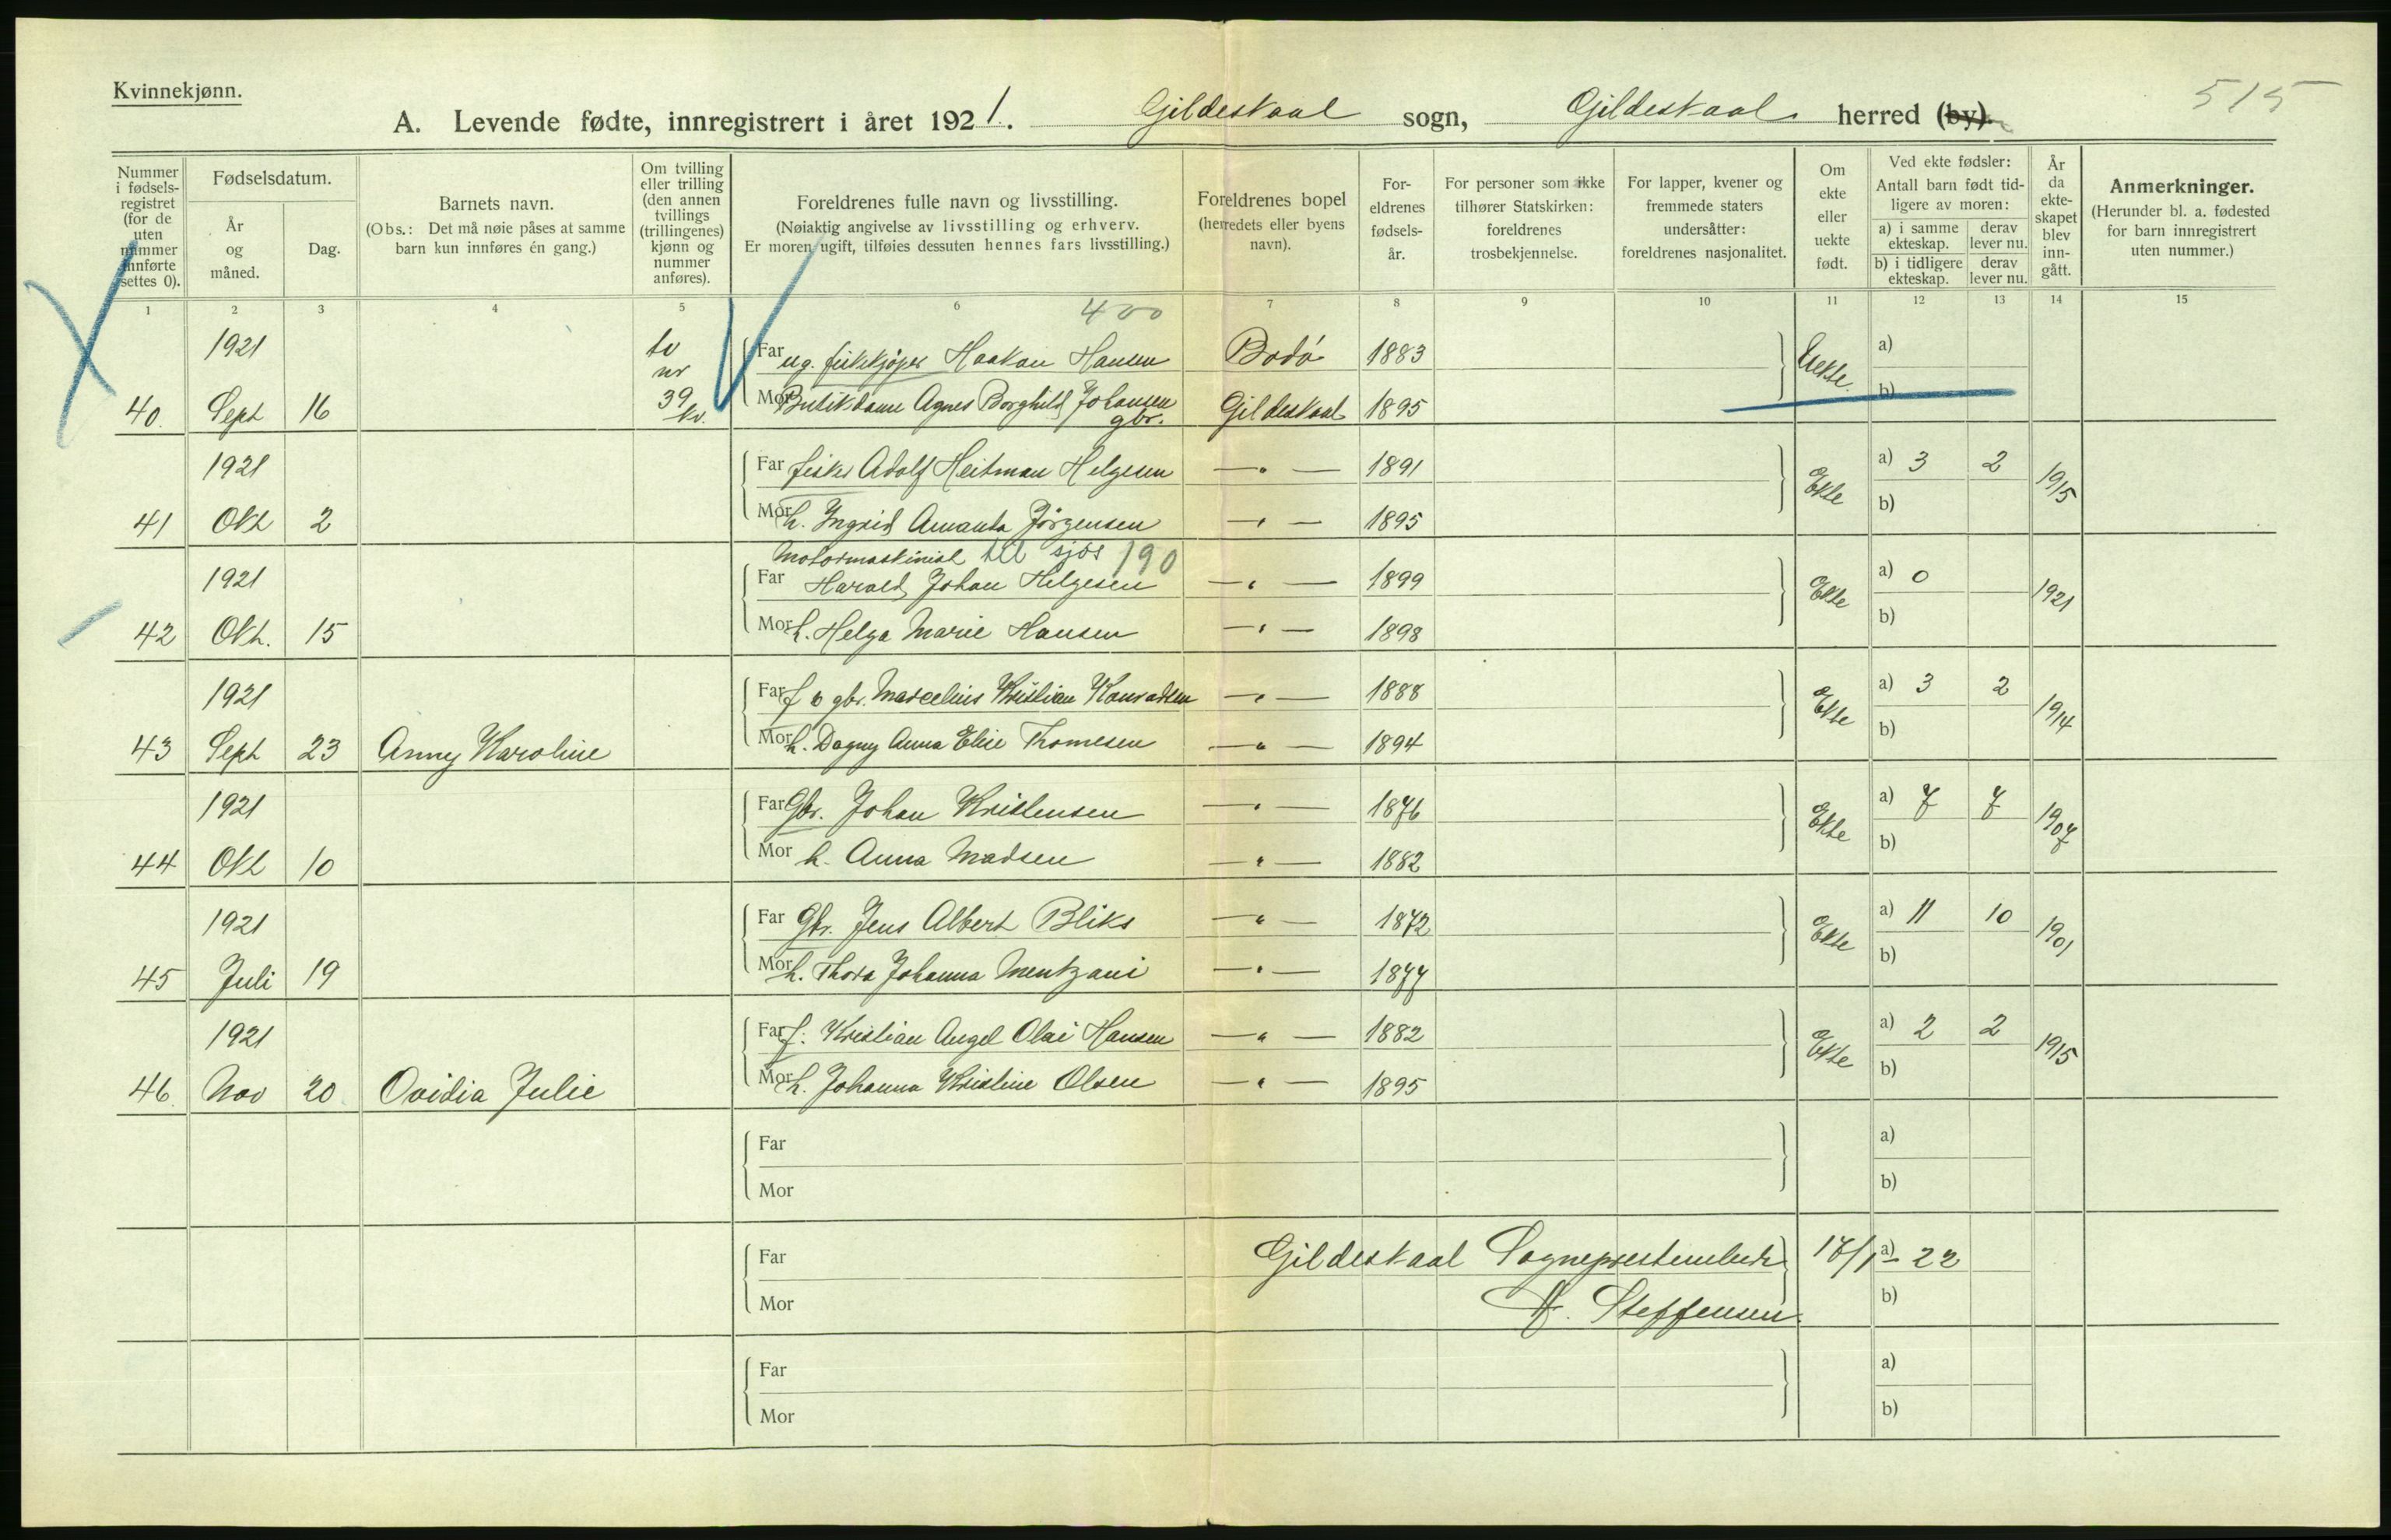 Kvinnekjønn.
515
A. Levende fødte, innregistrert i året 1921. Gildeskaal sogn, Gildeskaal herred (by).
Nummer i fødsels-registret (for de uten nummer innførte settes 0).
Fødselsdatum.
År og måned.
Dag.
Barnets navn.
(Obs.: Det må nøie påses at samme barn kun innføres én gang.)
Om tvilling eller trilling (den annen tvillings (trillingenes) kjønn og nummer anføres).
Foreldrenes fulle navn og livsstilling.
(Nøiaktig angivelse av livsstilling og erhverv.
Er moren ugift, tilføies dessuten hennes fars livsstilling.)
Foreldrenes bopel (herredets eller byens navn).
For-eldrenes fødsels-år.
For personer som ikke tilhører Statskirken: foreldrenes trosbekjennelse.
For lapper, kvener og fremmede staters undersåtter: foreldrenes nasjonalitet.
Om ekte eller uekte født.
Ved ekte fødsler:
Antall barn født tid-ligere av moren:
a) i samme ekteskap.
derav lever nu.
b) i tidligere ekteskap.
derav lever nu.
År da ekte-skapet blev inn-gått.
Anmerkninger.
(Herunder bl. a. fødested for barn innregistrert uten nummer.)
1 2 3 4 5 6 7 8 9 10 11 12 13 14 15
400
1921 tv Far ug. fiskekjøper Haakon Hansen Bodö 1883 Uekte. a)
nr
40. Sept 16 39 kv. Mor Butikdame Agnes Borghild Johansen gbr. Gildeskaal 1895 b)
1921 Far fisker Adolf Heitman Helgesen — " — 1891 Ekte a) 3 2 1915
41 Okt 2 Mor h. Ingrid Amanta Jörgensen — " — 1895 b)
Motormaskinist til sjøs 190
1921 Far Harald Johan Helgesen — " — 1899 Ekte a) 0 1921
42 Okt. 15 Mor h. Helga Marie Hansen — " — 1898 b)
1921 Far f o gbr. Marcelius Kristian Konradsen — " — 1888 Ekte a) 3 2 1914
43 Sept 23 Anny Karoline Mor h. Dagny Anna Elise Thomesen — " — 1894 b)
1921 Far Gbr. Johan Kristensen — " — 1876 Ekte a) 7 7 1907
44 Okt 10 Mor h. Anna Madsen — " — 1882 b)
1921 Far Gbr. Jens Albert Bliks — " — 1872 Ekte a) 11 10 1901
45 Juli 19 Mor h. Thora Johanna Mentzoni — " — 1877 b)
1921 Far f: Kristian Angel Olai Hansen — " — 1882 Ekte a) 2 2 1915
46. Nov 20 Ovidia Julie Mor h. Johanna Kristine Olsen — " — 1895 b)
Far a)
Mor b)
Far Gildeskaal Sogneprestembede 17/1 - 22 a)
Mor Steffensen. b)
Far a)
Mor b)